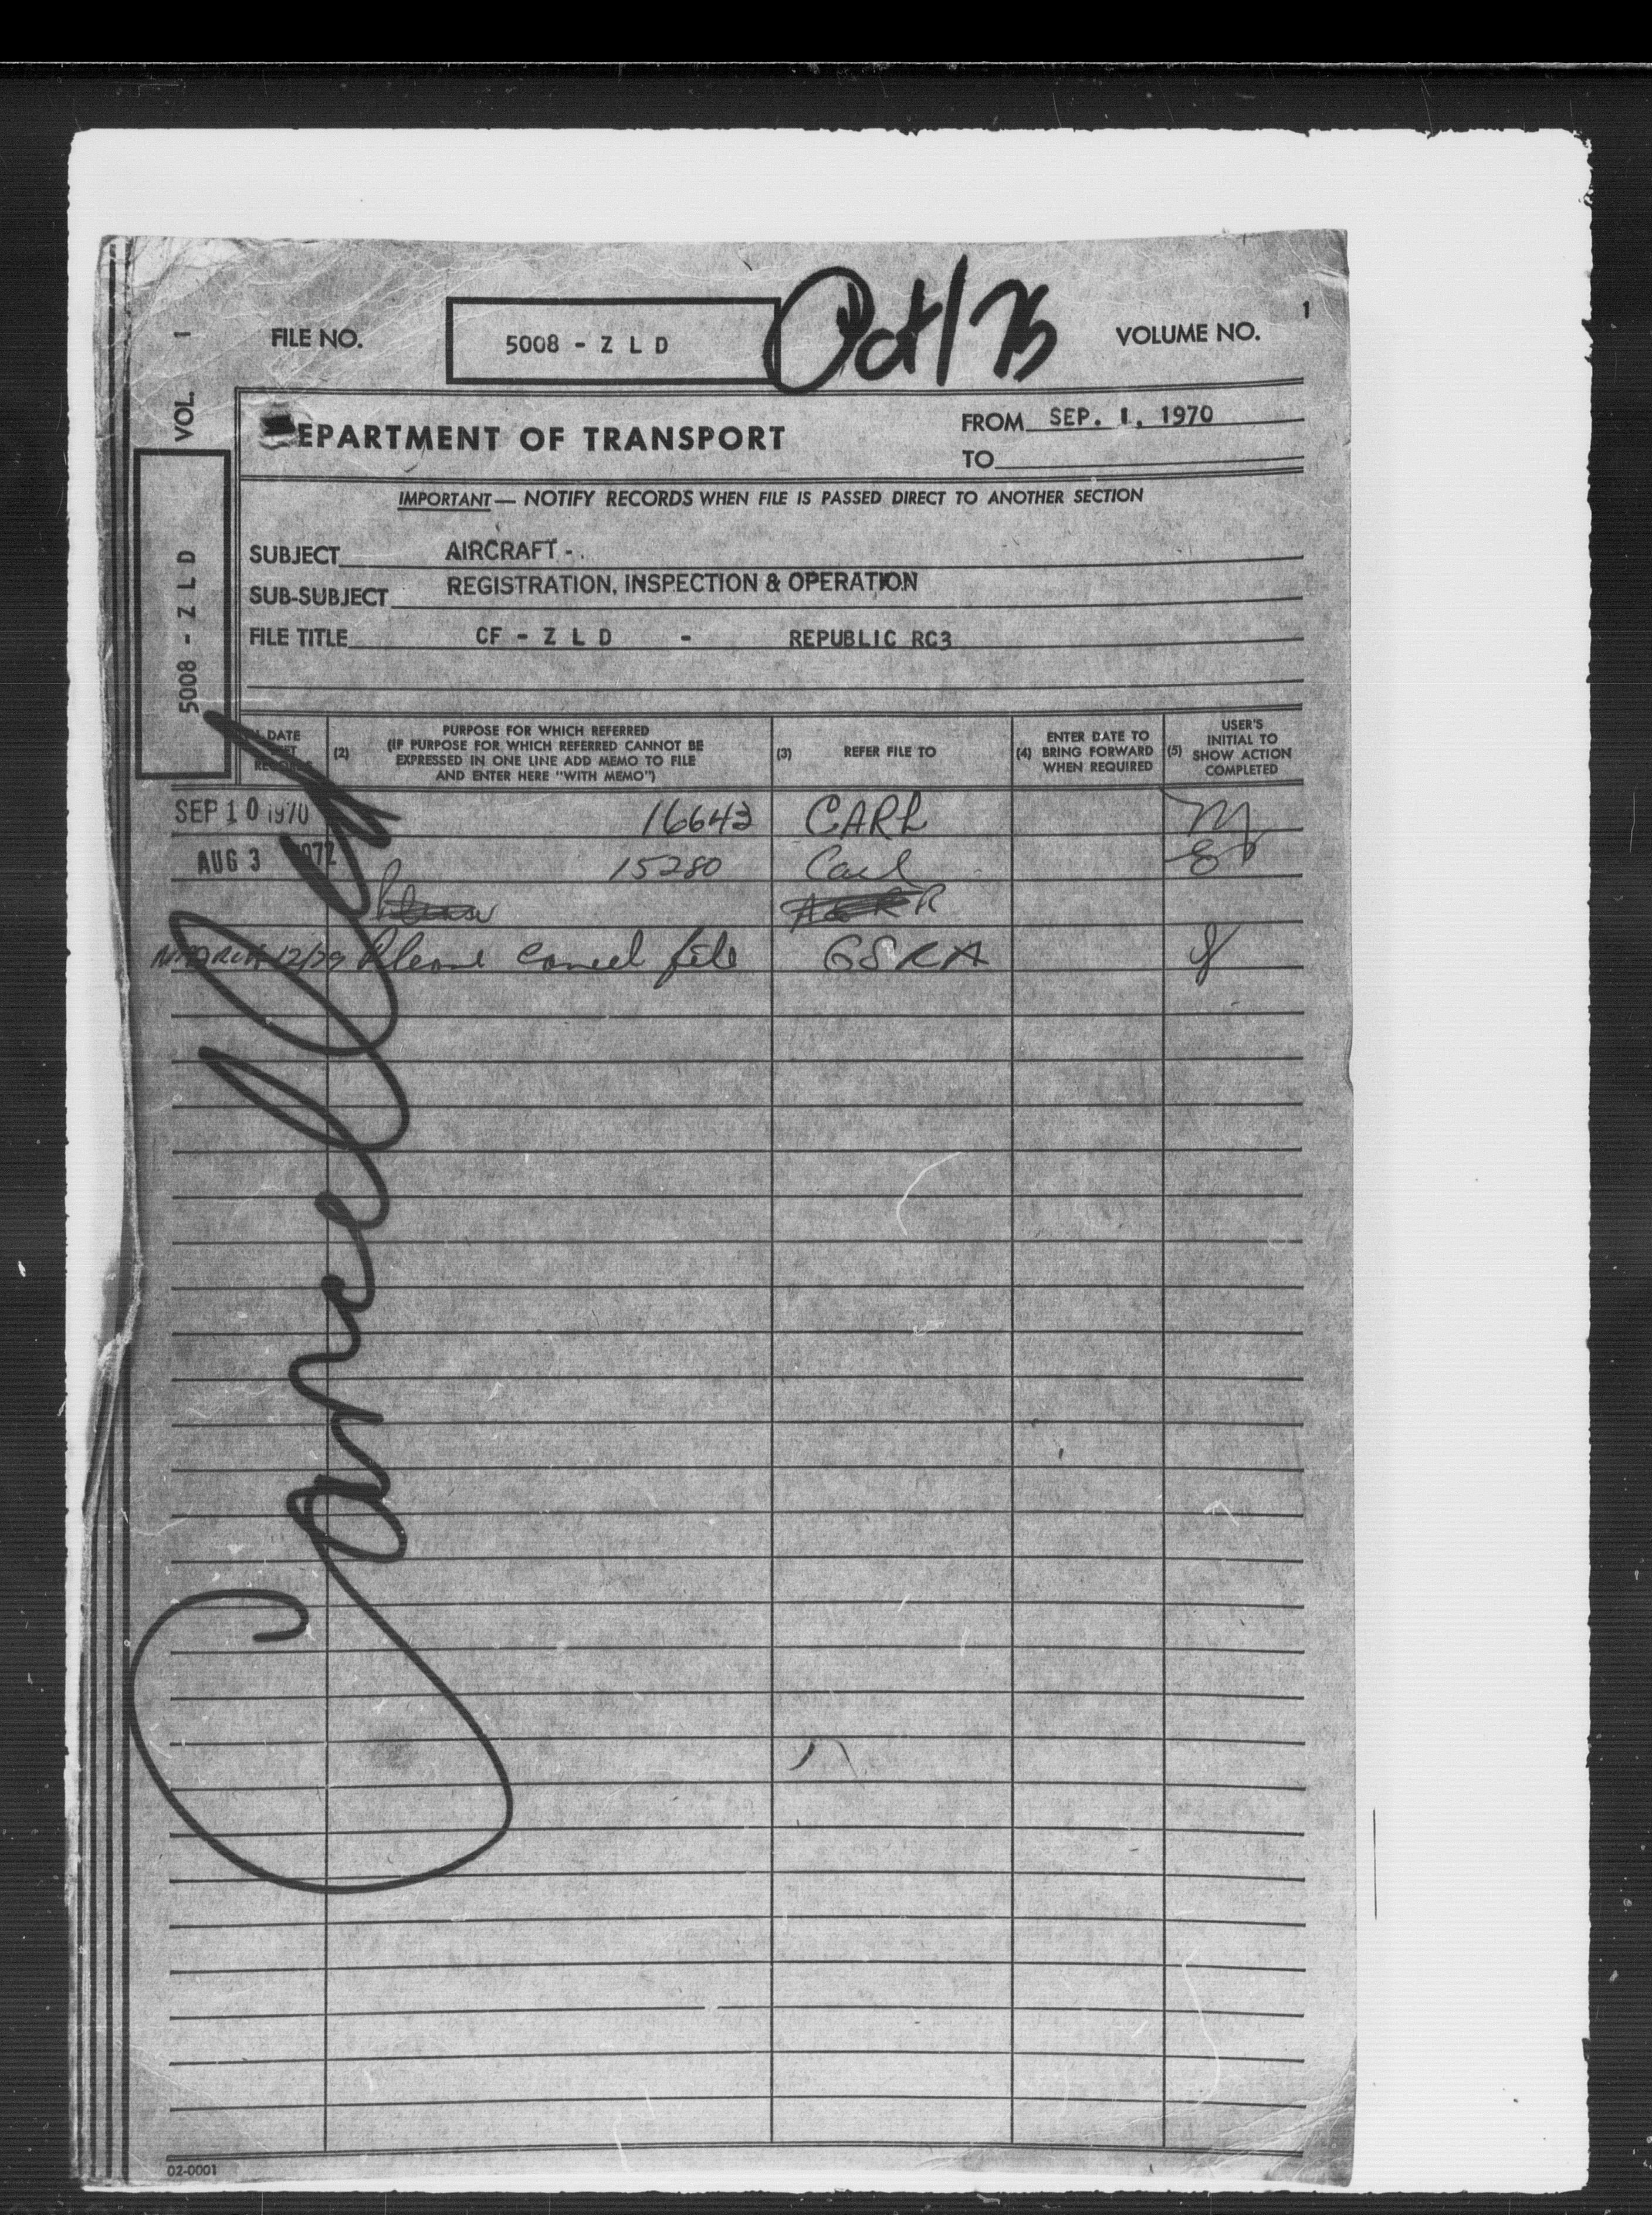 1
FILE NO. 5008 - Z L D Oct/75 VOLUME NO.
VOL. 1
5008 - Z L D
EPARTMENT OF TRANSPORT
FROM SEP. 1, 1970
TO
IMPORTANT — NOTIFY RECORDS WHEN FILE IS PASSED DIRECT TO ANOTHER SECTION
SUBJECT AIRCRAFT -
SUB-SUBJECT REGISTRATION, INSPECTION & OPERATION
FILE TITLE CF - Z L D - REPUBLIC RC3
DATE
(2) PURPOSE FOR WHICH REFERRED
(IF PURPOSE FOR WHICH REFERRED CANNOT BE
EXPRESSED IN ONE LINE ADD MEMO TO FILE
AND ENTER HERE "WITH MEMO")
(3) REFER FILE TO
(4) ENTER DATE TO
BRING FORWARD
WHEN REQUIRED
(5) USER'S
INITIAL TO
SHOW ACTION
COMPLETED
SEP 10 1970 16643 CARL
AUG 3 1972 15280 Carl
March 12/79 Please cancel file
Cancelled
02-0001